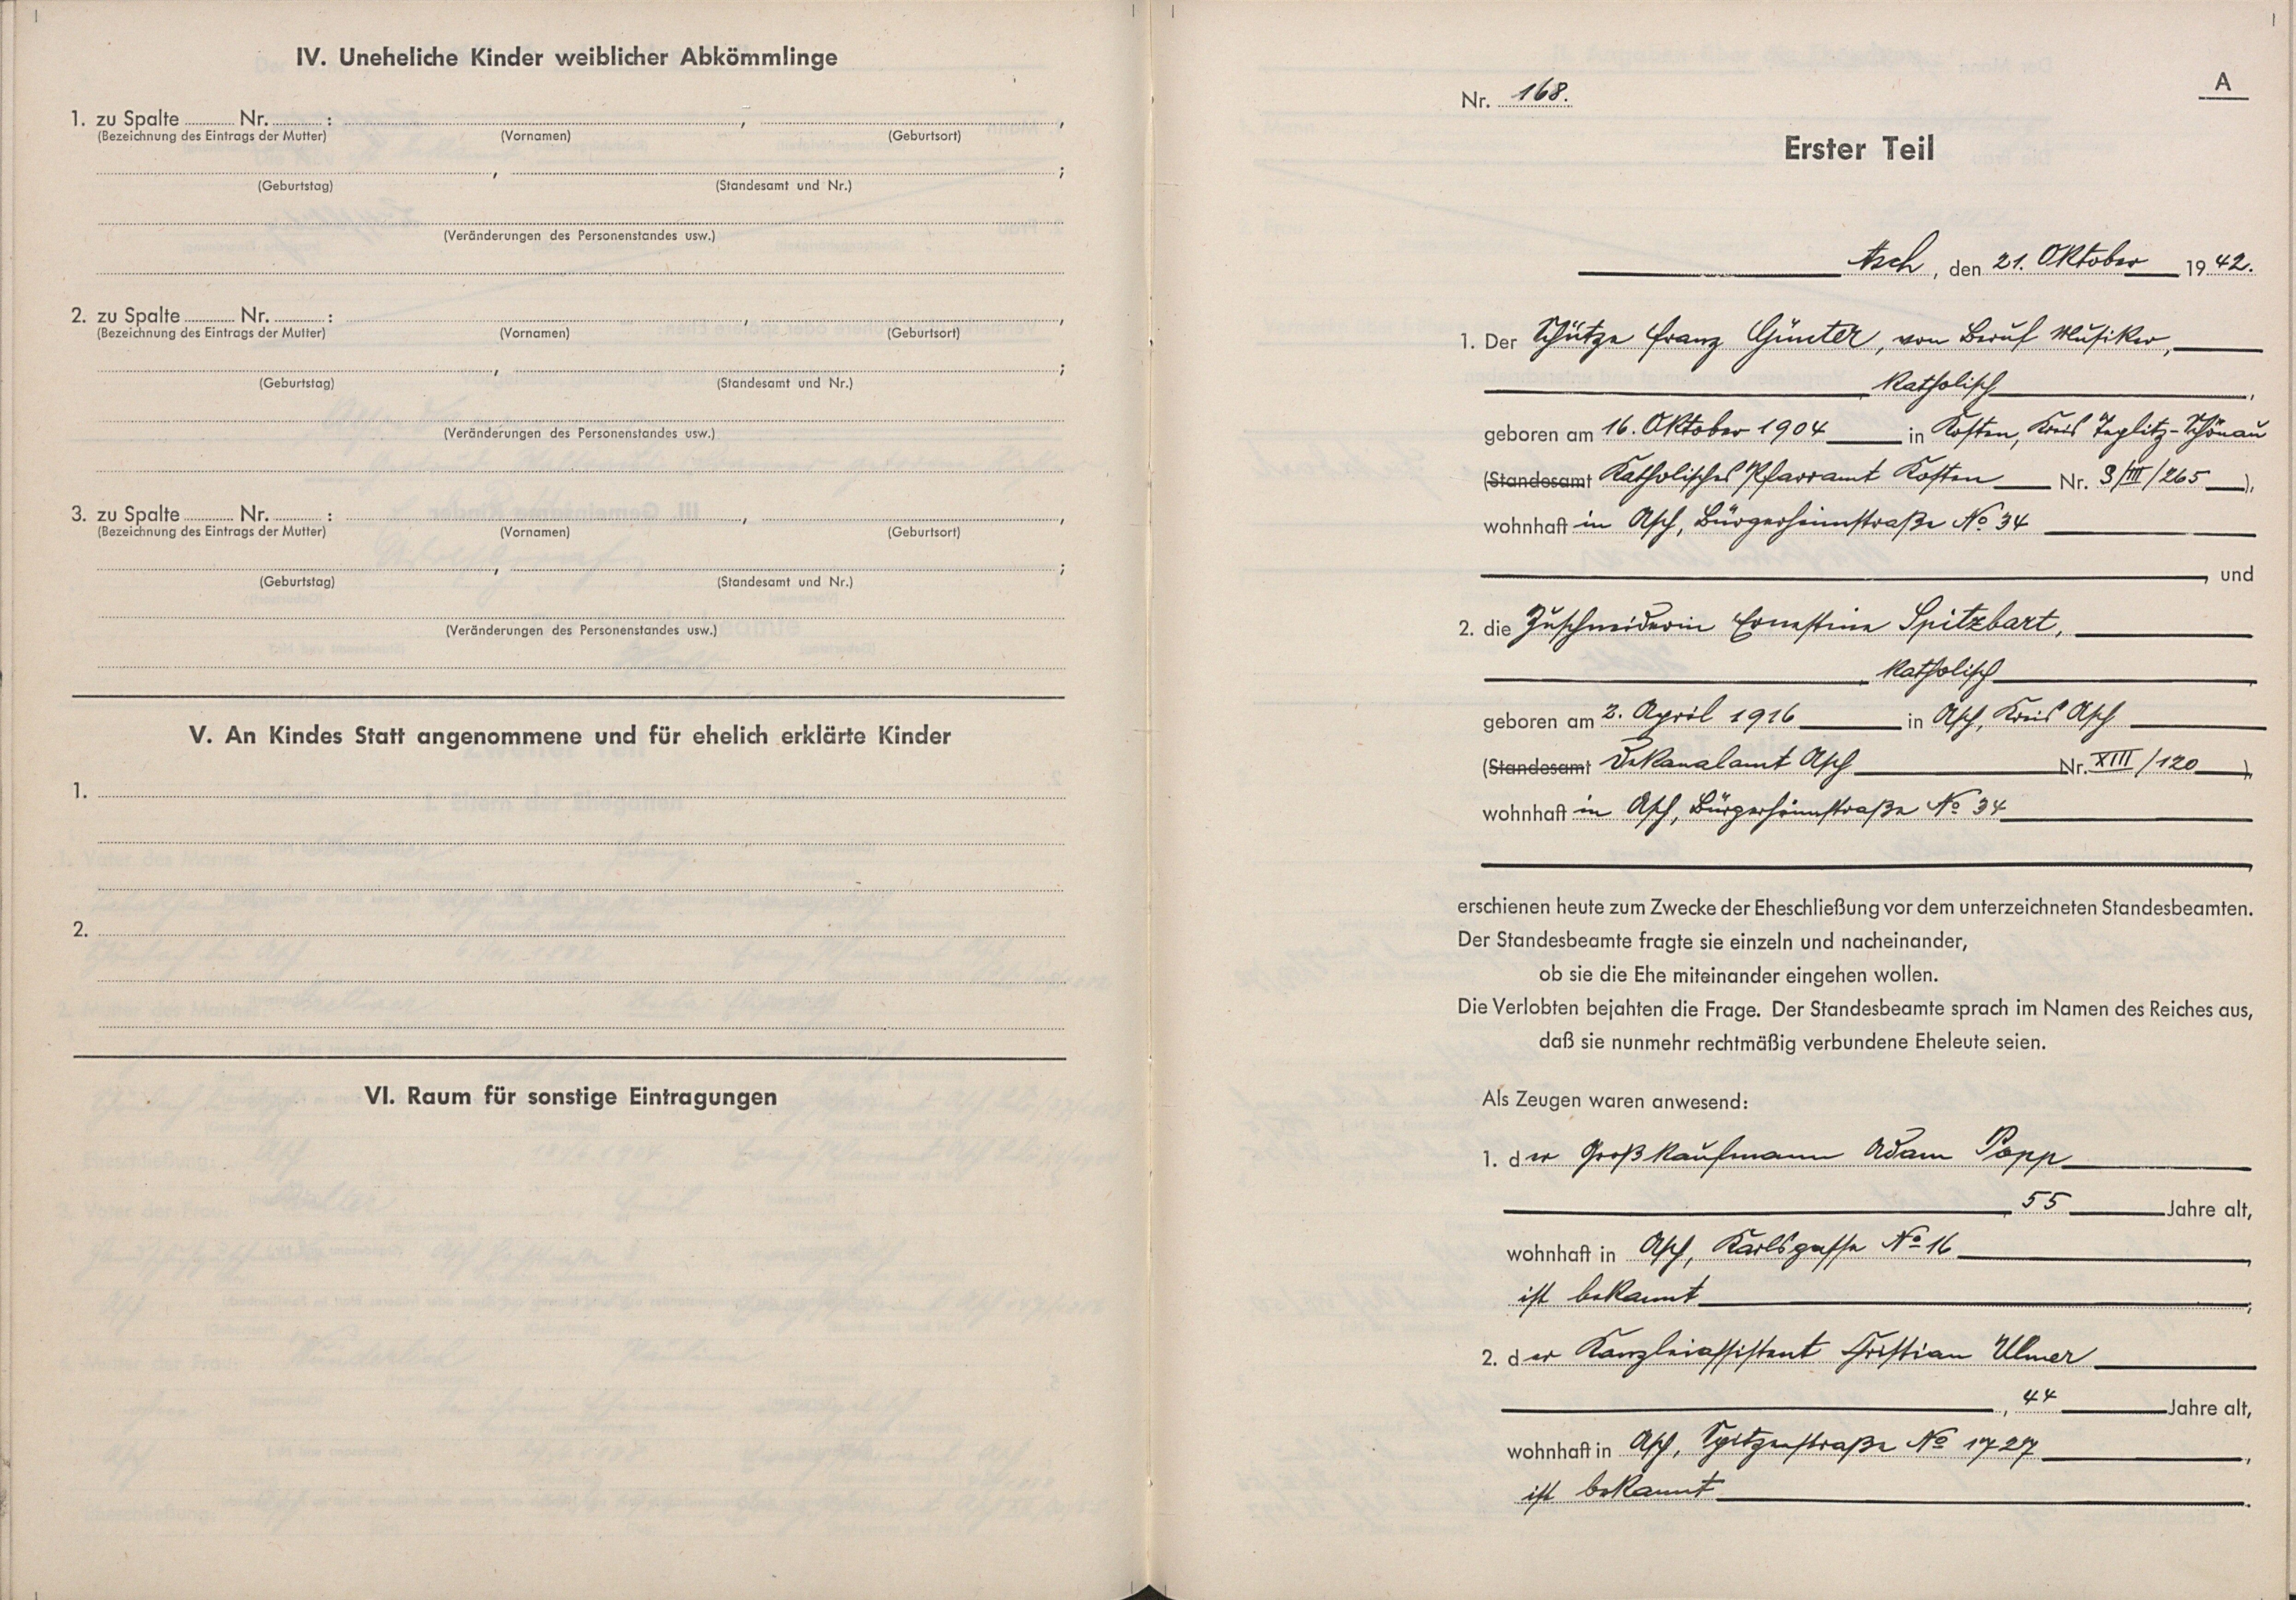 IV. Uneheliche Kinder weiblicher Abkömmlinge
1. zu Spalte Nr. : , ,
(Bezeichnung des Eintrags der Mutter) (Vornamen) (Geburtsort)
, ;
(Geburtstag) (Standesamt und Nr.)
(Veränderungen des Personenstandes usw.)
2. zu Spalte Nr. : , ,
(Bezeichnung des Eintrags der Mutter) (Vornamen) (Geburtsort)
, ;
(Geburtstag) (Standesamt und Nr.)
(Veränderungen des Personenstandes usw.)
3. zu Spalte Nr. : , ,
(Bezeichnung des Eintrags der Mutter) (Vornamen) (Geburtsort)
, ;
(Geburtstag) (Standesamt und Nr.)
(Veränderungen des Personenstandes usw.)
V. An Kindes Statt angenommene und für ehelich erklärte Kinder
1.
2.
VI. Raum für sonstige Eintragungen
A
Nr. 168.
Erster Teil
Asch, den 21. Oktober 1942.
1. Der Schütze Franz Günter, von Beruf Musiker,
katholisch,
geboren am 16. Oktober 1904 in Kosten, Kreis Teplitz-Schönau
(Standesamt Katholisches Pfarramt Kosten Nr. 3/III/265),
wohnhaft in Asch, Bürgerheimstraße No 34
, und
2. die Zuschneiderin Ernestine Spitzbart,
katholisch,
geboren am 2. April 1916 in Asch, Kreis Asch
(Standesamt Dekanalamt Asch Nr. XIII/120),
wohnhaft in Asch, Bürgerheimstraße No 34
,
erschienen heute zum Zwecke der Eheschließung vor dem unterzeichneten Standesbeamten.
Der Standesbeamte fragte sie einzeln und nacheinander,
ob sie die Ehe miteinander eingehen wollen.
Die Verlobten bejahten die Frage. Der Standesbeamte sprach im Namen des Reiches aus,
daß sie nunmehr rechtmäßig verbundene Eheleute seien.
Als Zeugen waren anwesend:
1. der Großkaufmann Adam Popp
, 55 Jahre alt,
wohnhaft in Asch, Karlsgasse No 16,
ist bekannt;
2. der Kanzleiassistent Christian Ulmer
, 44 Jahre alt,
wohnhaft in Asch, Spitzenstraße No 1727,
ist bekannt.